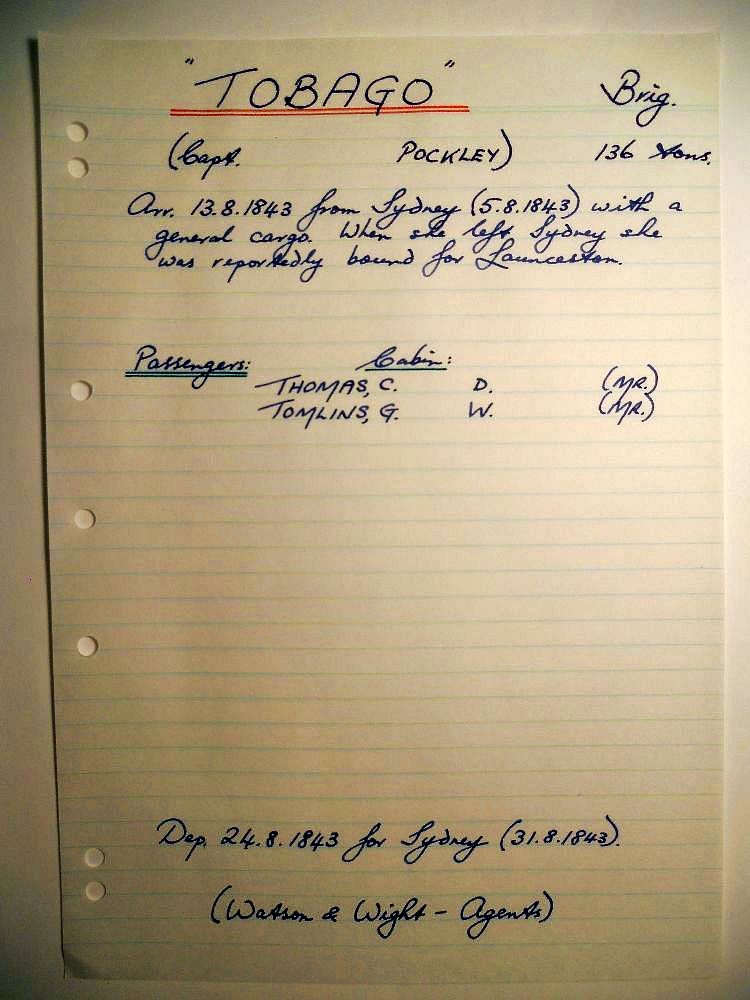 "TOBAGO" Brig.
(Capt. POCKLEY) 136 tons.
Arr. 13.8.1843 from Sydney (5.8.1843) with a
general cargo. When she left Sydney she
was reportedly bound for Launceston.
Passengers: Cabin:
THOMAS, C. D. (MR.)
TOMLINS, G. W. (MR.)
Dep. 24.8.1843 for Sydney (31.8.1843).
(Watson & Wight - Agents)